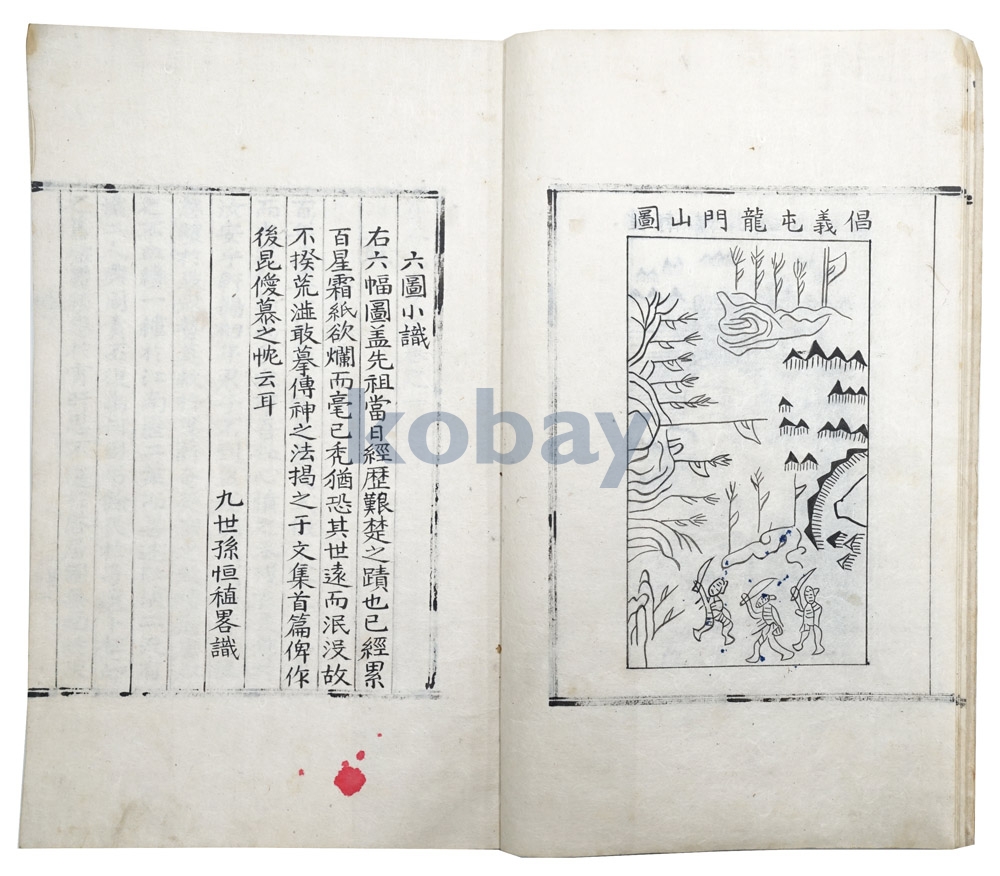 倡義屯龍門山圖
六圖小識
右六幅圖盖先祖當日經歷艱楚之蹟也已經累
百星霜紙欲爛而毫已禿猶恐其世遠而泯沒故
不揆荒澁敢摹傳神之法揭之于文集首篇俾作
後昆僾慕之忱云耳
九世孫恒植畧識
kobay